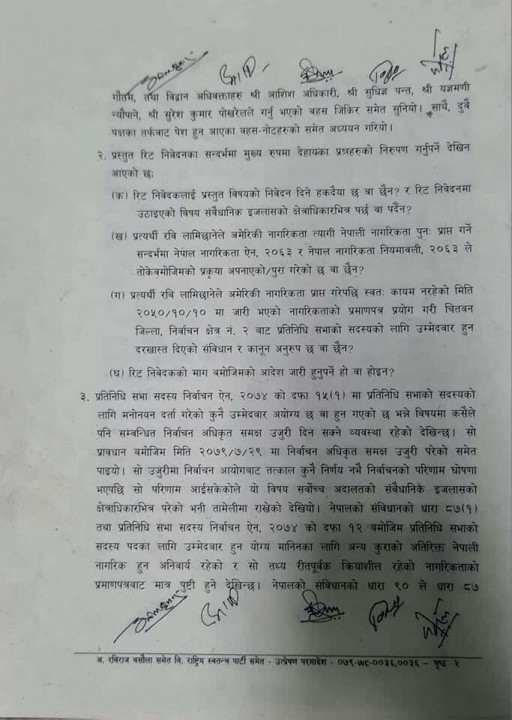 गौतम, तथा विद्वान अधिवक्ताहरु श्री आशिश अधिकारी, श्री सुधिज्ञ पन्त, श्री यज्ञमणी
न्यौपाने, श्री सुरेश कुमार पोखरेलले गर्नु भएको बहस जिकिर समेत सुनियो। साथै, दुवै
पक्षका तर्फबाट पेश हुन आएका बहस-नोटहरुको समेत अध्ययन गरियो।
२. प्रस्तुत रिट निवेदनका सन्दर्भमा मुख्य रुपमा देहायका प्रश्नहरुको निरुपण गर्नुपर्ने देखिन
आएको छ:
(क) रिट निवेदकलाई प्रस्तुत विषयको निवेदन दिने हकदैया छ वा छैन? र रिट निवेदनमा
उठाइएको विषय संवैधानिक इजलासको क्षेत्राधिकारभित्र पर्छ वा पर्दैन?
(ख) प्रत्यर्थी रवि लामिछानेले अमेरिकी नागरिकता त्यागी नेपाली नागरिकता पुन: प्राप्त गर्ने
सन्दर्भमा नेपाल नागरिकता ऐन, २०६३ र नेपाल नागरिकता नियमावली, २०६३ ले
तोकेबमोजिमको प्रकृया अपनाएको/पुरा गरेको छ वा छैन?
(ग) प्रत्यर्थी रवि लामिछानेले अमेरिकी नागरिकता प्राप्त गरेपछि स्वत: कायम नरहेको मिति
२०५०/१०/१० मा जारी भएको नागरिकताको प्रमाणपत्र प्रयोग गरी चितवन
जिल्ला, निर्वाचन क्षेत्र नं. २ बाट प्रतिनिधि सभाको सदस्यको लागि उम्मेदवार हुन
दरखास्त दिएको संविधान र कानून अनुरुप छ वा छैन?
(घ) रिट निवेदकको माग बमोजिमको आदेश जारी हुनुपर्ने हो वा होइन?
३. प्रतिनिधि सभा सदस्य निर्वाचन ऐन, २०७४ को दफा १५(१) मा प्रतिनिधि सभाको सदस्यको
लागि मनोनयन दर्ता गरेको कुनै उम्मेदवार अयोग्य छ वा हुन गएको छ भन्ने विषयमा कसैले
पनि सम्बन्धित निर्वाचन अधिकृत समक्ष उजुरी दिन सक्ने व्यवस्था रहेको देखिन्छ। सो
प्रावधान बमोजिम मिति २०७९/७/२९ मा निर्वाचन अधिकृत समक्ष उजुरी परेको समेत
पाइयो। सो उजुरीमा निर्वाचन आयोगबाट तत्काल कुनै निर्णय नभै निर्वाचनको परिणाम घोषणा
भएपछि सो परिणाम आईसकेकोले यो विषय सर्वोच्च अदालतको संवैधानिक इजलासको
क्षेत्राधिकारभित्र परेको भनी तामेलीमा राखेको देखियो। नेपालको संविधानको धारा ८७(१)
तथा प्रतिनिधि सभा सदस्य निर्वाचन ऐन, २०७४ को दफा १२ बमोजिम प्रतिनिधि सभाको
सदस्य पदका लागि उम्मेदवार हुन योग्य मानिनका लागि अन्य कुराको अतिरिक्त नेपाली
नागरिक हुन अनिवार्य रहेको र सो तथ्य रीतपूर्वक क्रियाशील रहेको नागरिकताको
प्रमाणपत्रबाट मात्र पुष्टी हुने देखिन्छ। नेपालको संविधानको धारा ९० ले धारा ८७
व. रविराज बसौला समेत वि. राष्ट्रिय स्वतन्त्र पार्टी समेत - उत्प्रेषण परमादेश - ०७९-WC-००३६,००३६ - पृष्ठ २